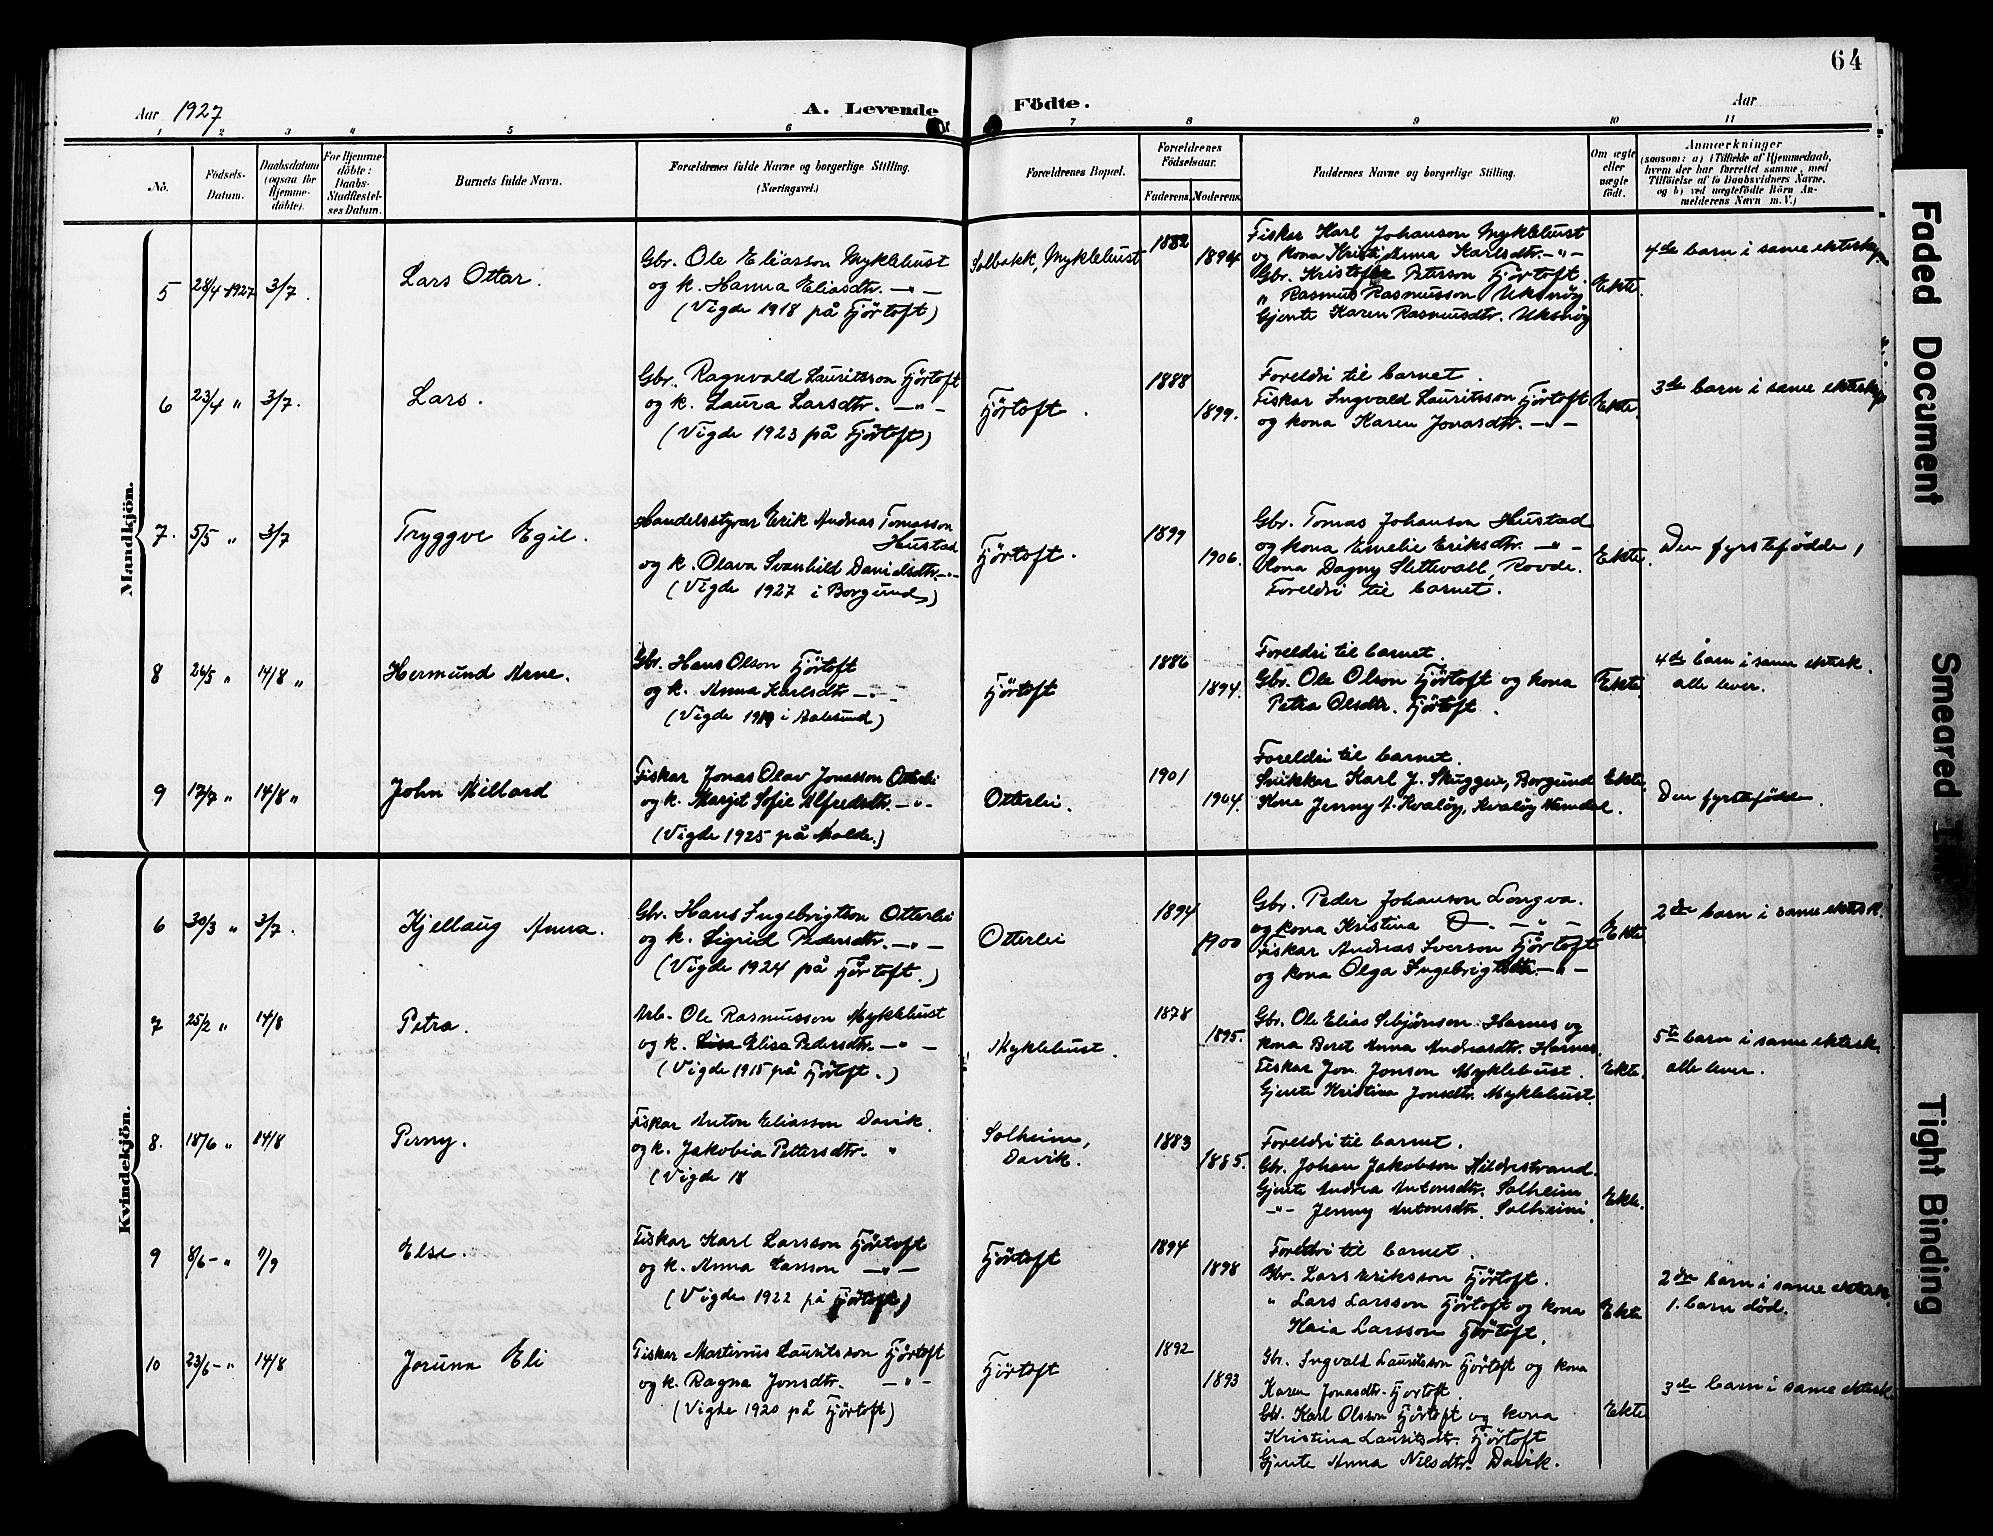 64
Aar 1927
A. Levende Födte.
Aar
1 2 3 4 5 6 7 8 9 10 11
No.
Födsels-
Datum.
Daabsdatum
(ogsaa for
Hjemme-
döbte).
For Hjemme-
döbte:
Daabs-
Stadfestel-
ses Datum.
Barnets fulde Navn.
Forældrenes fulde Navne og borgerlige Stilling.
(Næringsvei.)
Forældrenes Bopæl.
Forældrenes
Födselsaar.
Faderens.
Moderens.
Faddernes Navne og borgerlige Stilling.
Om ægte
eller
uægte
födt.
Anmærkninger
(saasom: a) i Tilfælde af Hjemmedaab,
hvem der har forrettet samme, med
Tilföielse af to Daabsvidners Navne,
og b) ved uægtefödte Börn An-
melderens Navn m. V.)
Mandkjön.
5 28/4-1927 3/7. Lars Ottar.
Gbr. Ole Eliasson Myklebust
og k. Hanna Eliasdtr. -"-
(Vigde 1918 på Fjörtoft)
Solbakk, Myklebust
1882
1894
Fiskar Karl Johanson Myklebust
og kona Kristi Anna Karlsdtr. -"-
Gbr. Kristofer Peterson Fjörtoft.
" Rasmus Rasmusson Uksnöy
Gjente Karen Rasmusdtr. Uksnöy
Ekte.
4de barn i same ektesk
6 23/4 " 3/7. Lars.
Gbr. Ragnvald Lauritsson Fjörtoft
og k. Laura Larsdtr. -"-
(Vigde 1923 på Fjörtoft)
Fjörtoft.
1888
1899.
Foreldri til barnet.
Fiskar Ingvald Lauritsson Fjörtoft
og kona Karen Jonasdtr. -"-
Ekte.
3de barn i same ektesk
7. 5/5 " 3/7 Tryggve Egil.
Handelsstyrar Erik Andreas Tomasson
Hustad
og k. Olava Svanhild Davidsdtr. -"-
(Vigde 1927 i Borgund)
Fjörtoft.
1899
1906.
Gbr. Tomas Johanson Hustad
og kona Emelie Eriksdtr. -"-
Kona Dagny Slettevall, Rovde.
Foreldri til barnet.
Ekte.
Den fyrstefödde
8 26/5 " 14/8 " Hermund Arne.
Gbr. Hans Olson Fjörtoft
og k. Anna Karlsdtr -"-
(Vigde 1919 i Aalesund)
Fjörtoft
1886
1894.
Foreldri til barnet.
Gbr. Ole Olson Fjörtoft og kona
Petra Olsdtr. Fjörtoft.
Ekte.
4de barn i same ektesk.
alle lever.
9 17/7 " 14/8 " John Millard
Fiskar Jonas Olav Jonasson Otterlei
og k. Marjit Sofie Alfredsdtr. -"-
(Vigde 1925 på Molde.)
Otterlei.
1901
1904.
Foreldri til barnet.
Snikkar Karl J. Skuggen, Borgund
Kona Jenny A. Kvalöy, Kvalöy Namdal.
Ekte.
Den fyrstefödde.
Kvindekjön.
6 30/3 " 3/7. Kjellaug Anna.
Gbr. Hans Ingebrigtson Otterlei
og k. Sigrid Pedersdtr. -"-
(Vigde 1924 på Fjörtoft.)
Otterlei
1894
1900
Gbr. Peder Johanson Longva.
og kona Kristina D. - " -
Fiskar Andreas Sverson Fjörtoft
og kona Olga Ingebrigtsdtr. -"-
Ekte
2dre barn i same ektesk.
7 25/2 " 14/8 Petra.
Arb. Ole Rasmusson Myklebust
og k. Elise Pedersdtr. -"-
(Vigde 1915 på Fjörtoft.)
Myklebust.
1878
1895.
Gbr. Ole Elias Sebjörnson Harnes og
kona Beret Anna Andreasdtr. Harnes.
Fiskar Jon Jonson Myklebust.
Gjente Kristina Jonsdtr. Myklebust.
Ekte.
5te barn i same ektesk.
alle lever.
8. 18/6 " 14/8 Perny.
Fiskar Anton Eliasson Davik.
og k. Jakobia Pettersdtr. "
(Vigde 18
Solheim,
Davik.
1883
1885.
Foreldri til barnet.
Gbr. Johan Jakobson Hildrestrand.
Gjente Andrea Antonsdtr. Solheim.
-"- Jenny Antonsdtr. Solheim.
Ekte.
9 8/6- " 7/9 Else.
Fiskar Karl Larsson Fjörtoft
og k. Anna Larsson -"-
(Vigde 1922 på Fjörtoft)
Fjörtoft
1894
1898
Foreldri til barnet.
Gbr. Lars Eriksson Fjörtoft.
" Lars Larsson Fjörtoft og kona
Maia Larsson Fjörtoft.
Ekte
2dre barn i same ektesk.
1. barn död.
10 23/6- " 14/8 Jorunn Eli
Fiskar Martinus Lauritsson Fjörtoft
og k. Ragna Jonsdtr. -"-
(Vigde 1920 på Fjörtoft)
Fjörtoft
1892
1893
Gbr. Ingvald Lauritsson Fjörtoft og kona
Karen Jonasdtr. Fjörtoft.
Gbr. Karl Olsson Fjörtoft og kona
Kristina Lauritsdtr. Fjörtoft
Gjente Anna Nilsdtr. Davik.
Ekte
3de barn i same ektesk.
Faded Document
Smeared Ink
Tight Binding